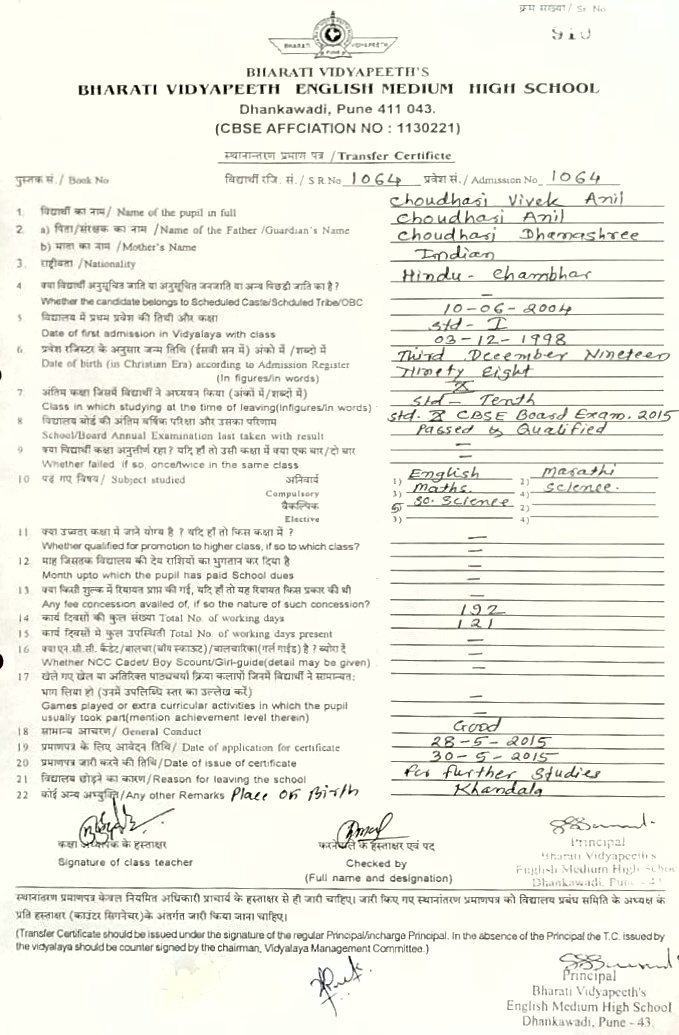 क्रम संख्या / Sr. No
910
BHARATI VIDYAPEETH
PUNE
BHARATI VIDYAPEETH'S
BHARATI VIDYAPEETH ENGLISH MEDIUM HIGH SCHOOL
Dhankawadi, Pune 411 043.
(CBSE AFFCIATION NO : 1130221)
स्थानान्तरण प्रमाण पत्र /Transfer Certificte
पुस्तक सं./ Book No विद्यार्थी रजि. सं./ S R.No 1064 प्रवेश सं./ Admission No 1064
1. विद्यार्थी का नाम/ Name of the pupil in full Choudhari Vivek Anil
2. a) पिता/संरक्षक का नाम /Name of the Father /Guardian's Name Choudhari Anil
b) माता का नाम /Mother's Name Choudhari Dhanashree
3. राष्ट्रीयता /Nationality Indian
4 क्या विद्यार्थी अनुसूचित जाति या अनुसूचित जनजाति या अन्य पिछडी जाति का है ? Hindu - Chambhar
Whether the candidate belongs to Scheduled Caste/Schduled Tribe/OBC —
5 विद्यालय में प्रथम प्रवेश की तिथी और कक्षा 10-06-2004
Date of first admission in Vidyalaya with class Std - I
6 प्रवेश रजिस्टर के अनुसार जन्म तिथि (ईसवी सन में) अंकों में /शब्दो में 03-12-1998
Date of birth (in Christian Era) according to Admission Register Third December Nineteen
(In figures/in words) Ninety Eight
7. अंतिम कक्षा जिसमें विद्यार्थी ने अध्ययन किया (अंकों में/शब्दों में) X
Class in which studying at the time of leaving(Infigures/in words) Std - Tenth
8 विद्यालय बोर्ड की अंतिम वर्षिक परिक्षा और उसका परिणाम Std. X CBSE Board Exam. 2015
School/Board Annual Examination last taken with result Passed by Qualified
9 क्या विद्यार्थी कक्षा अनुत्तीर्ण रहा ? यदि हाँ तो उसी कक्षा में क्या एक बार/दो बार —
Whether failed if so, once/twice in the same class —
10 पढ़े गए विषय/ Subject studied अनिवार्य 1) English 2) Marathi
Compulsory 3) Maths. 4) Science.
वैकल्पिक 5) So. Science 2)
Elective 3) 4)
11 क्या उच्चतर कक्षा में जाने योग्य है ? यदि हाँ तो किस कक्षा में ? —
Whether qualified for promotion to higher class, if so to which class? —
12 माह जिसतक विद्यालय की देय राशियों का भुगतान कर दिया है —
Month upto which the pupil has paid School dues —
13 क्या किसी शुल्क में रियायत प्राप्त की गई, यदि हाँ तो यह रियायत किस प्रकार की थी —
Any fee concession availed of, if so the nature of such concession?
14 कार्य दिवसों की कुल संख्या Total No. of working days 192
15 कार्य दिवसों मे कुल उपस्थिती Total No. of working days present 121
16 क्या एन.सी.सी. कैडेट/बालचर(बॉय स्काऊट)/बालचारिका(गर्ल गाईड) है ? ब्योरा दें —
Whether NCC Cadet/ Boy Scount/Girl-guide(detail may be given) —
17 खेले गए खेल या अतिरिक्त पाठ्यचर्या क्रिया कलापों जिनमें विद्यार्थी ने सामान्यत:
भाग लिया हो (उनमें उपलिब्धि स्तर का उल्लेख करें)
Games played or extra curricular activities in which the pupil —
usually took part(mention achievement level therein) —
18 सामान्य आचरण/ General Conduct Good
19 प्रमाणपत्र के लिए आवेदन तिथि/ Date of application for certificate 28-5-2015
20 प्रमाणपत्र जारी करने की तिथि/Date of issue of certificate 30-5-2015
21 विद्यालय छोड़ने का कारण/Reason for leaving the school For further Studies
22 कोई अन्य अभ्युक्ति/Any other Remarks Place OF Birth Khandala
कक्षा अध्यापक के हस्ताक्षर
Signature of class teacher
के हस्ताक्षर एवं पद
Checked by
(Full name and designation)
Principal
Bharati Vidyapeeth's
English Medium High School
Dhankawadi, Pune - 43.
स्थानांतरण प्रमाणपत्र केवल नियमित अधिकारी प्राचार्य के हस्ताक्षर से ही जारी चाहिए। जारी किए गए स्थानांतरण प्रमाणपत्र को विद्यालय प्रबंध समिति के अध्यक्ष के
प्रति हस्ताक्षर (काउंटर सिगनेचर)के अंतर्गत जारी किया जाना चाहिए।
(Transfer Certificate should be issued under the signature of the regular Principal/incharge Principal. In the absence of the Principal the T.C. issued by
the vidyalaya should be counter signed by the chairman, Vidyalaya Management Committee.)
Principal
Bharati Vidyapeeth's
English Medium High School
Dhankawadi, Pune - 43.